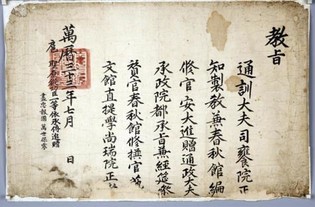 教旨
通訓大夫司饔院正
知製敎兼春秋館編
修官安大進贈通政大夫
承政院都承旨兼經筵參
贊官春秋館修撰官藝
文館直提學尚瑞院正
萬曆三十三年七月 日